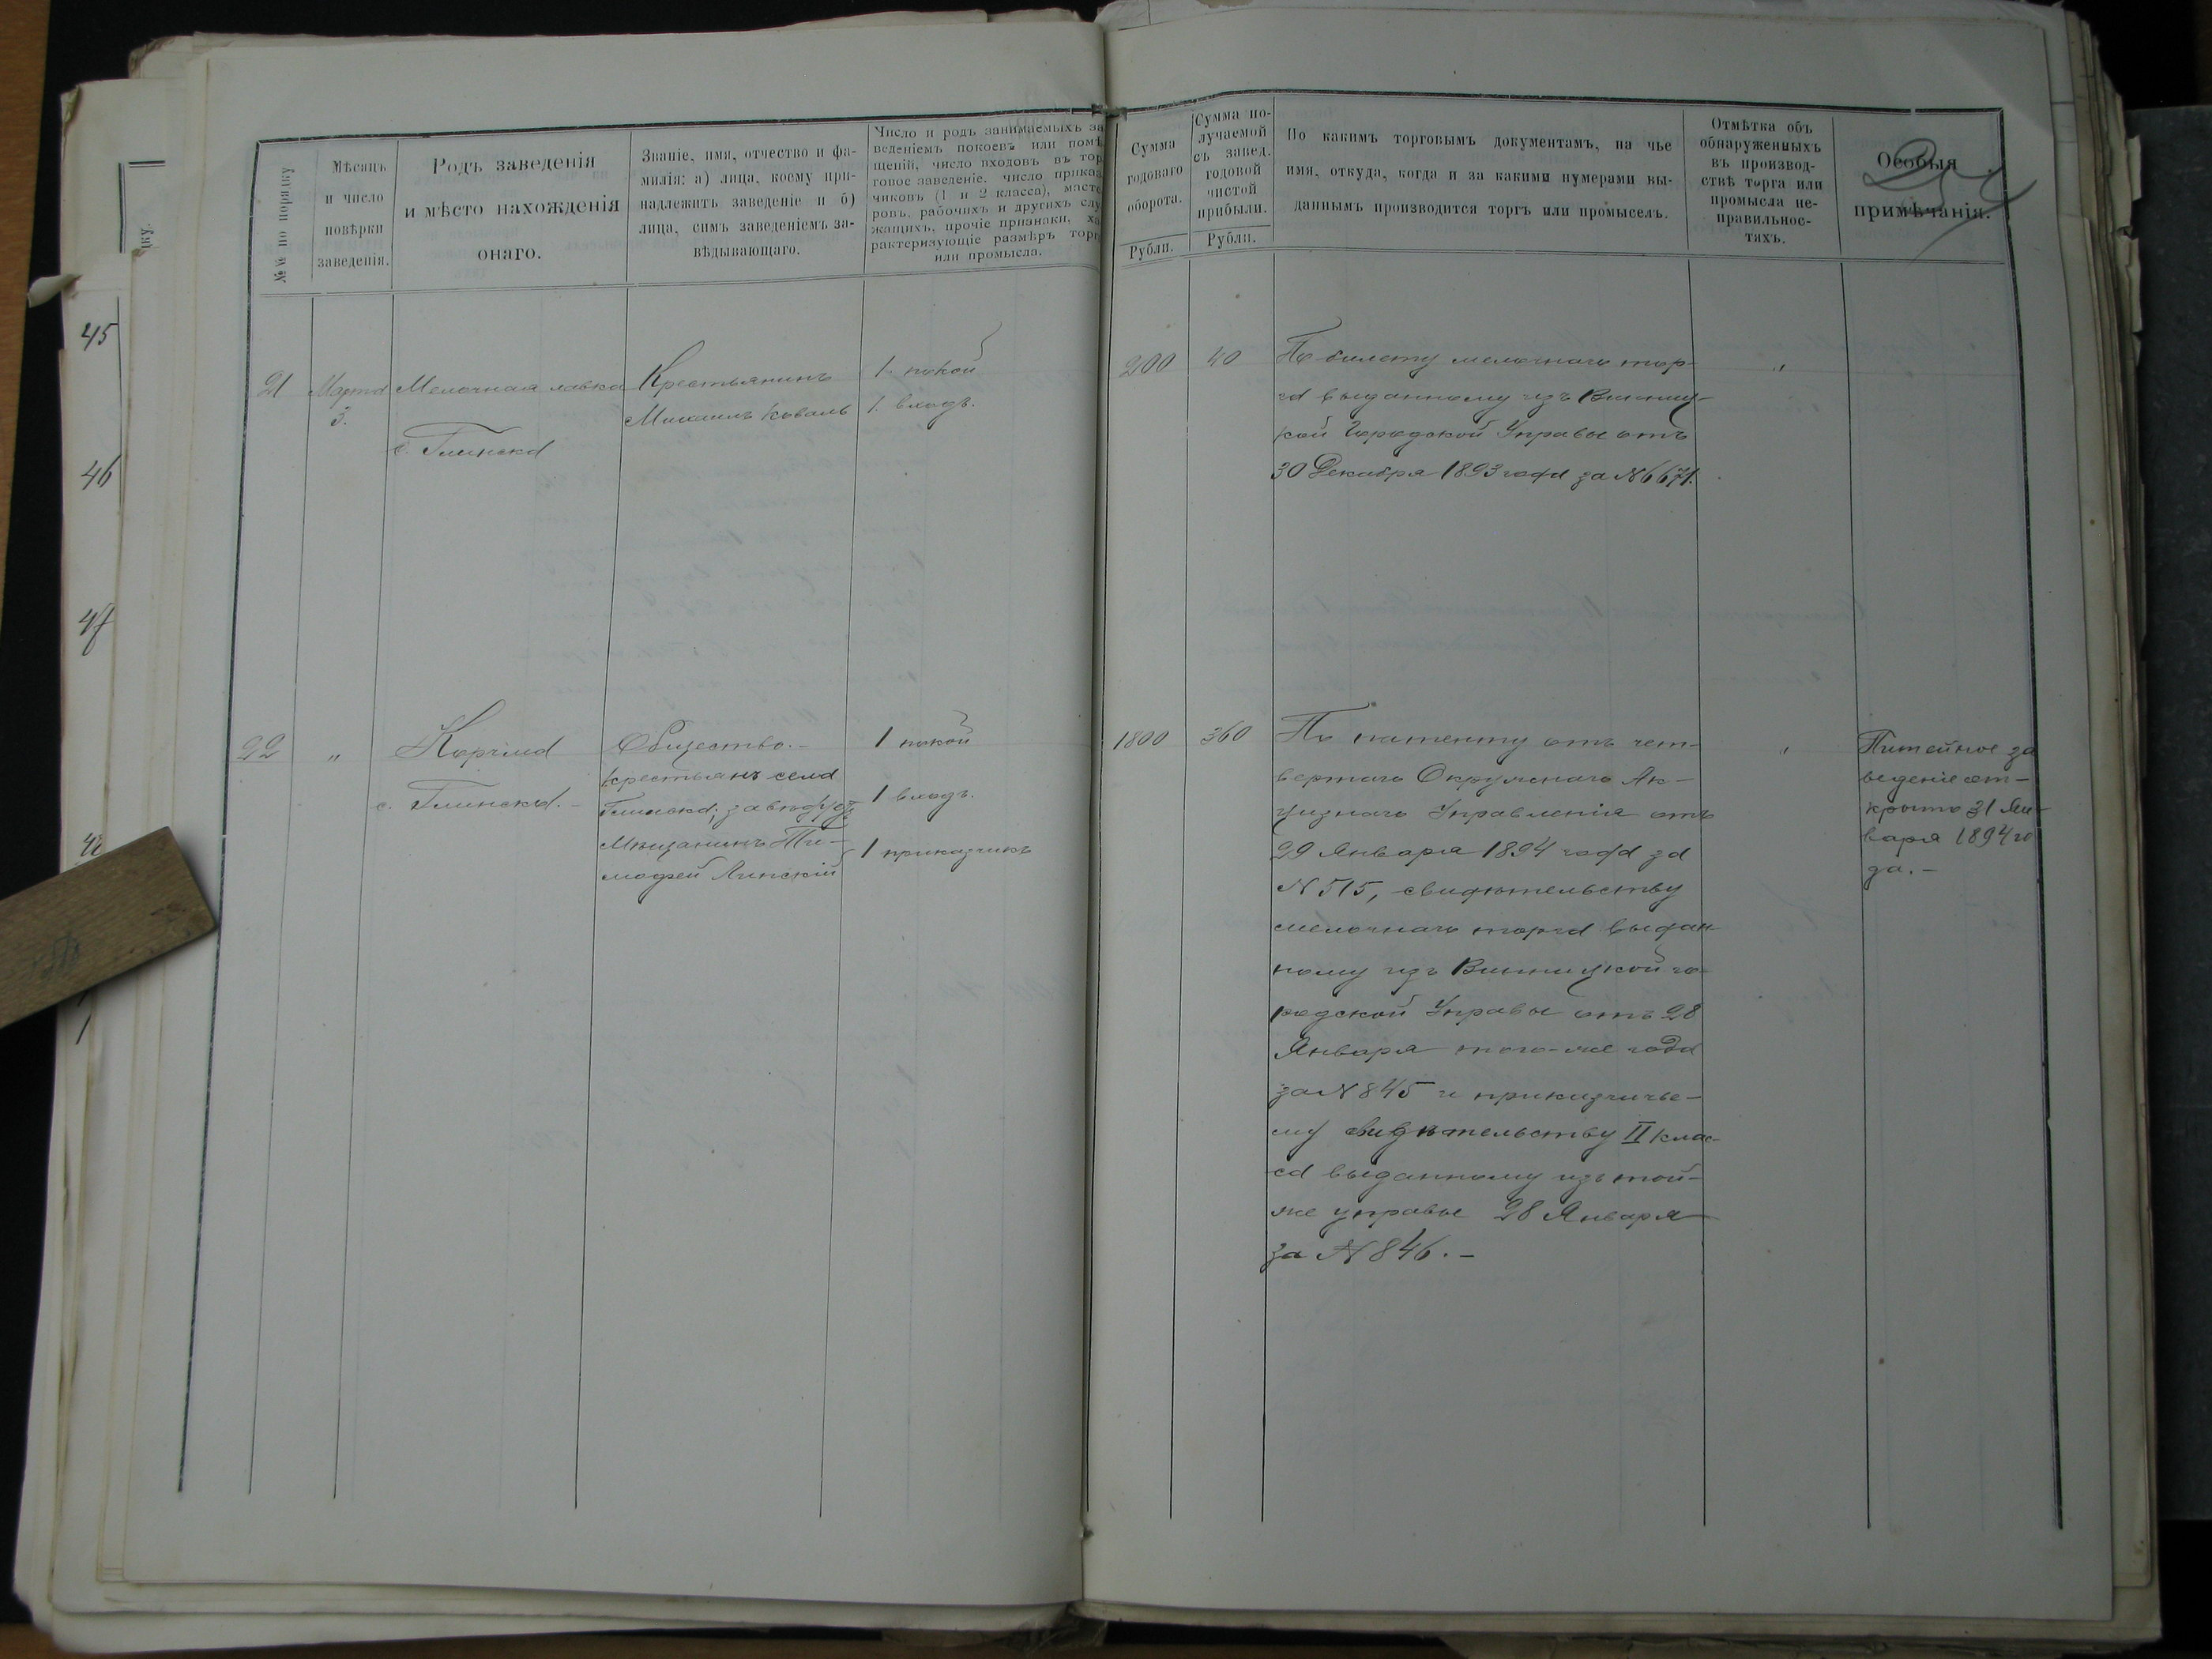 №№ по порядку
Мѣсяцъ
и число
повѣрки
заведенія.
Родъ заведенія
и мѣсто нахожденія
онаго.
Званіе, имя, отчество и фа-
милія: а) лица, коему при-
надлежитъ заведеніе и б)
лица, симъ заведеніемъ за-
вѣдывающаго.
Число и родъ занимаемыхъ за
веденіемъ покоевъ или помѣ
щеній, число входовъ въ тор
говое заведеніе, число приказ
чиковъ (1 и 2 класса), масте
ровъ, рабочихъ и другихъ слу
жащихъ, прочіе признаки, ха
рактеризующіе размѣръ торг
или промысла.
Сумма
годоваго
оборота.
Рубли.
Сумма по-
лучаемой
съ завед.
годовой
чистой
прибыли.
Рубли.
По какимъ торговымъ документамъ, на чье
имя, откуда, когда и за какими нумерами вы-
даннымъ производится торгъ или промыселъ.
Отмѣтка объ
обнаруженныхъ
въ производ-
ствѣ торга или
промысла не-
правильнос-
тяхъ.
Особыя
примѣчанія.
45
46
47
21
Марта
3.
Мелочная лавка
с. Глинска
Крестьянинъ
Михаилъ Коваль
1 покой
1 входъ.
200
40
По билету мелочнаго тор-
га выданному изъ Винниц-
кой Городской Управы отъ
30 Декабря 1893 года за N 6671.
"
22
"
Корчма
с. Глинска. -
Общество. -
крестьянъ села
Глинска; завѣдуетъ
Мѣщанинъ Ти-
мофей Линскій
1 покой
1 входъ.
1 приказчикъ
1800
360
По патенту отъ чет-
вертаго Окружнаго Ак-
цизнаго Управленія отъ
29 Января 1894 года за
N 515, свидѣтельству
мелочнаго торга выдан-
ному изъ Винницкой го-
родской Управы отъ 28
Января того-же года
за N 845 и приказчичье-
му свидѣтельству II клас-
са выданному изъ той-
же управы 28 Января
за N 846. -
"
Питейное за
веденіе от-
крыто 31 Ян-
варя 1894 го
да. -